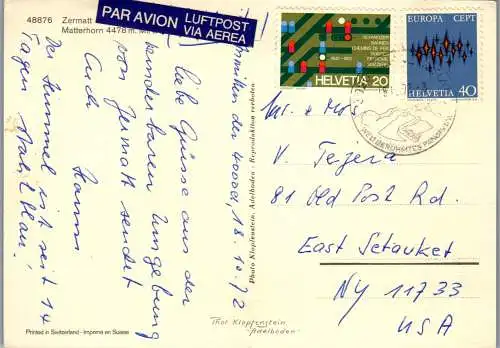 48876 Zermatt
Matterhorn 4478 m.
PAR AVION LUFTPOST
VIA AEREA
den 18.10.72
Liebe Grüsse aus der
wunderbaren Umgebung
von Zermatt sendet
Euch
Hanni
Der Himmel ist seit 14
Tagen stahlblau!
Printed in Switzerland - Imprimé en Suisse
Photo Klopfenstein, Adelboden - Reproduktion verboten
Thor Klopfenstein
Adelboden
SCHWEIZER
BAHNEN
CHEMINS DE FER
HELVETIA 20
EUROPA CEPT
HELVETIA 40
Mr. & Mrs
V. Tejera
81 Old Post Rd.
East Setauket
NY 11733
USA